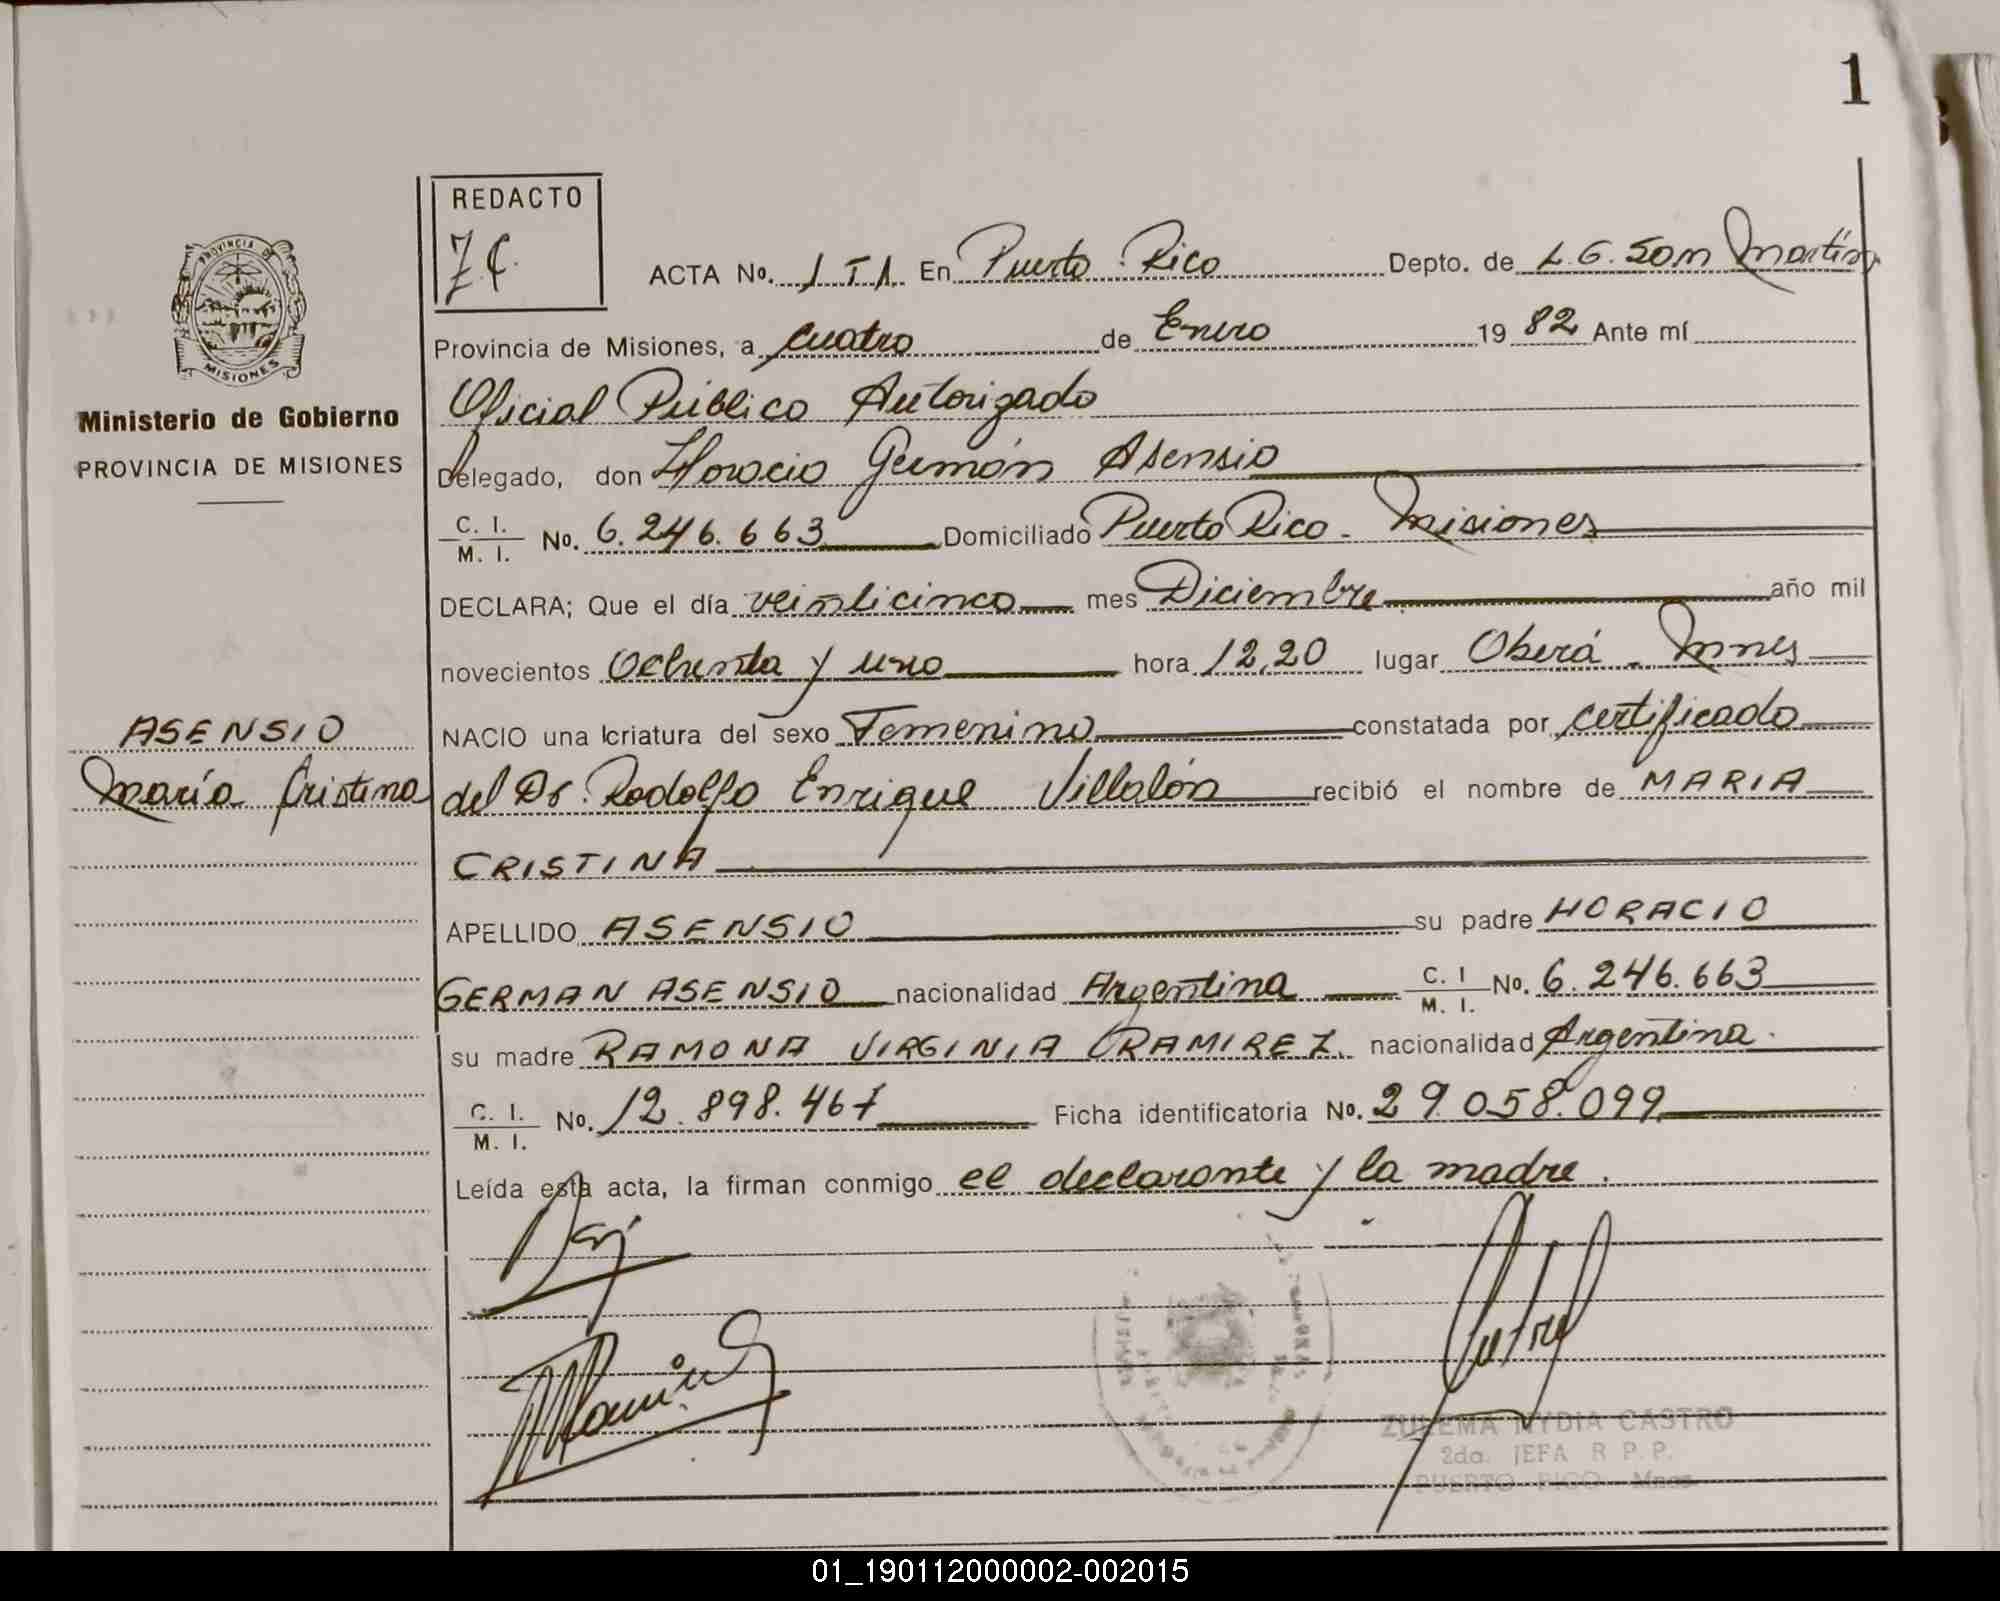 1
REDACTO
Z.C.
PROVINCIA DE
MISIONES
Ministerio de Gobierno
PROVINCIA DE MISIONES
ACTA No. 1 T 1. En Puerto Rico Depto. de L.G. San Martín
Provincia de Misiones, a cuatro de Enero 19 82 Ante mí
Oficial Público Autorizado
Delegado, don Horacio Germán Asensio
C. I.
M. I. No. 6.246.663 Domiciliado Puerto Rico - Misiones
DECLARA; Que el día veinticinco mes Diciembre año mil
novecientos Ochenta y uno hora 12,20 lugar Oberá - Mnes
NACIO una criatura del sexo Femenino constatada por certificado
ASENSIO
María Cristina
del Dr. Rodolfo Enrique Villalón recibió el nombre de MARIA
CRISTINA
APELLIDO ASENSIO su padre HORACIO
GERMAN ASENSIO nacionalidad Argentina C. I
M. I. No. 6.246.663
su madre RAMONA VIRGINIA RAMIREZ. nacionalidad Argentina.
C. I.
M. I. No. 12.898.467 Ficha identificatoria No. 29.058.099
Leída esta acta, la firman conmigo el declarante y la madre.
ZULEMA NYDIA CASTRO
2da. JEFA R P.P.
PUERTO RICO Mnes
01_190112000002-002015